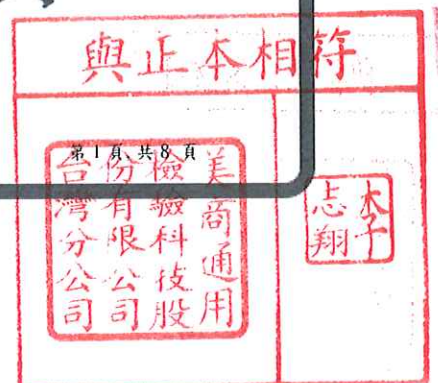 與正本相符
第1頁、共8頁
美商通用
檢驗科技股
份有限公司
台灣分公司
李
志翔